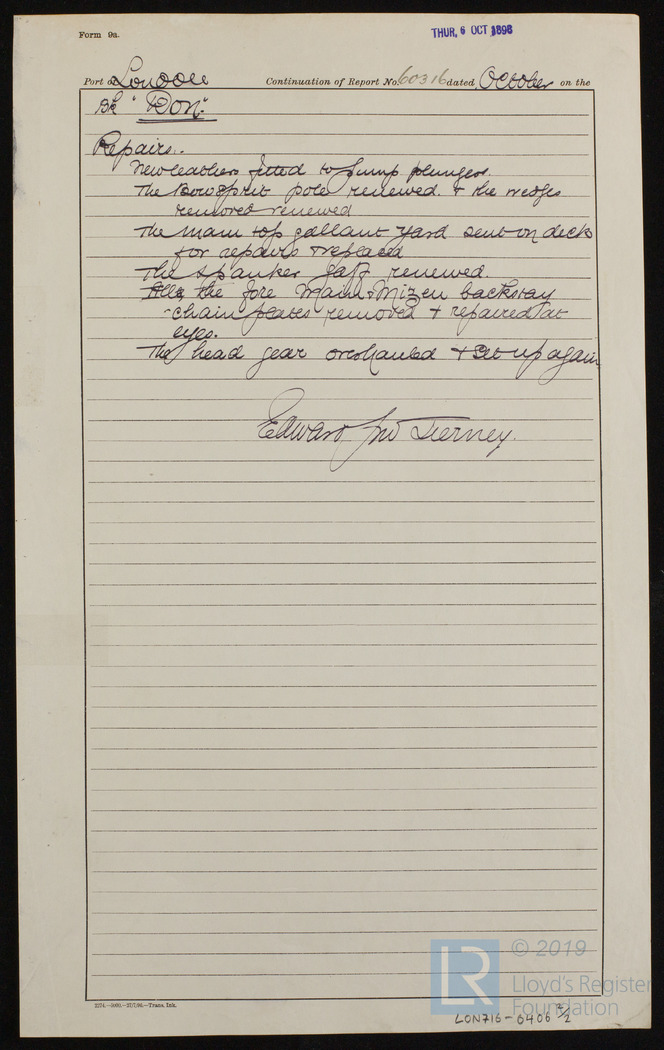 Form 9a.
THUR, 6 OCT 1898
Port of London Continuation of Report No. 60316 dated October on the
Bk "Don"
Repairs.
New leathers fitted to pump plungers.
The Bowsprit pole renewed. + the wedges
removed renewed
The main top gallant yard sent on deck
for repairs + replaced
The spanker gaff renewed.
the fore Main + Mizen backstay
chain plates removed + repaired at
eyes.
The head gear overhauled + set up again
Edward Tierney.
© 2019
LR
Lloyd's Register
Foundation
2274.—5000.—27/7/98.—Trans. Ink.
LON716-0406 2/2